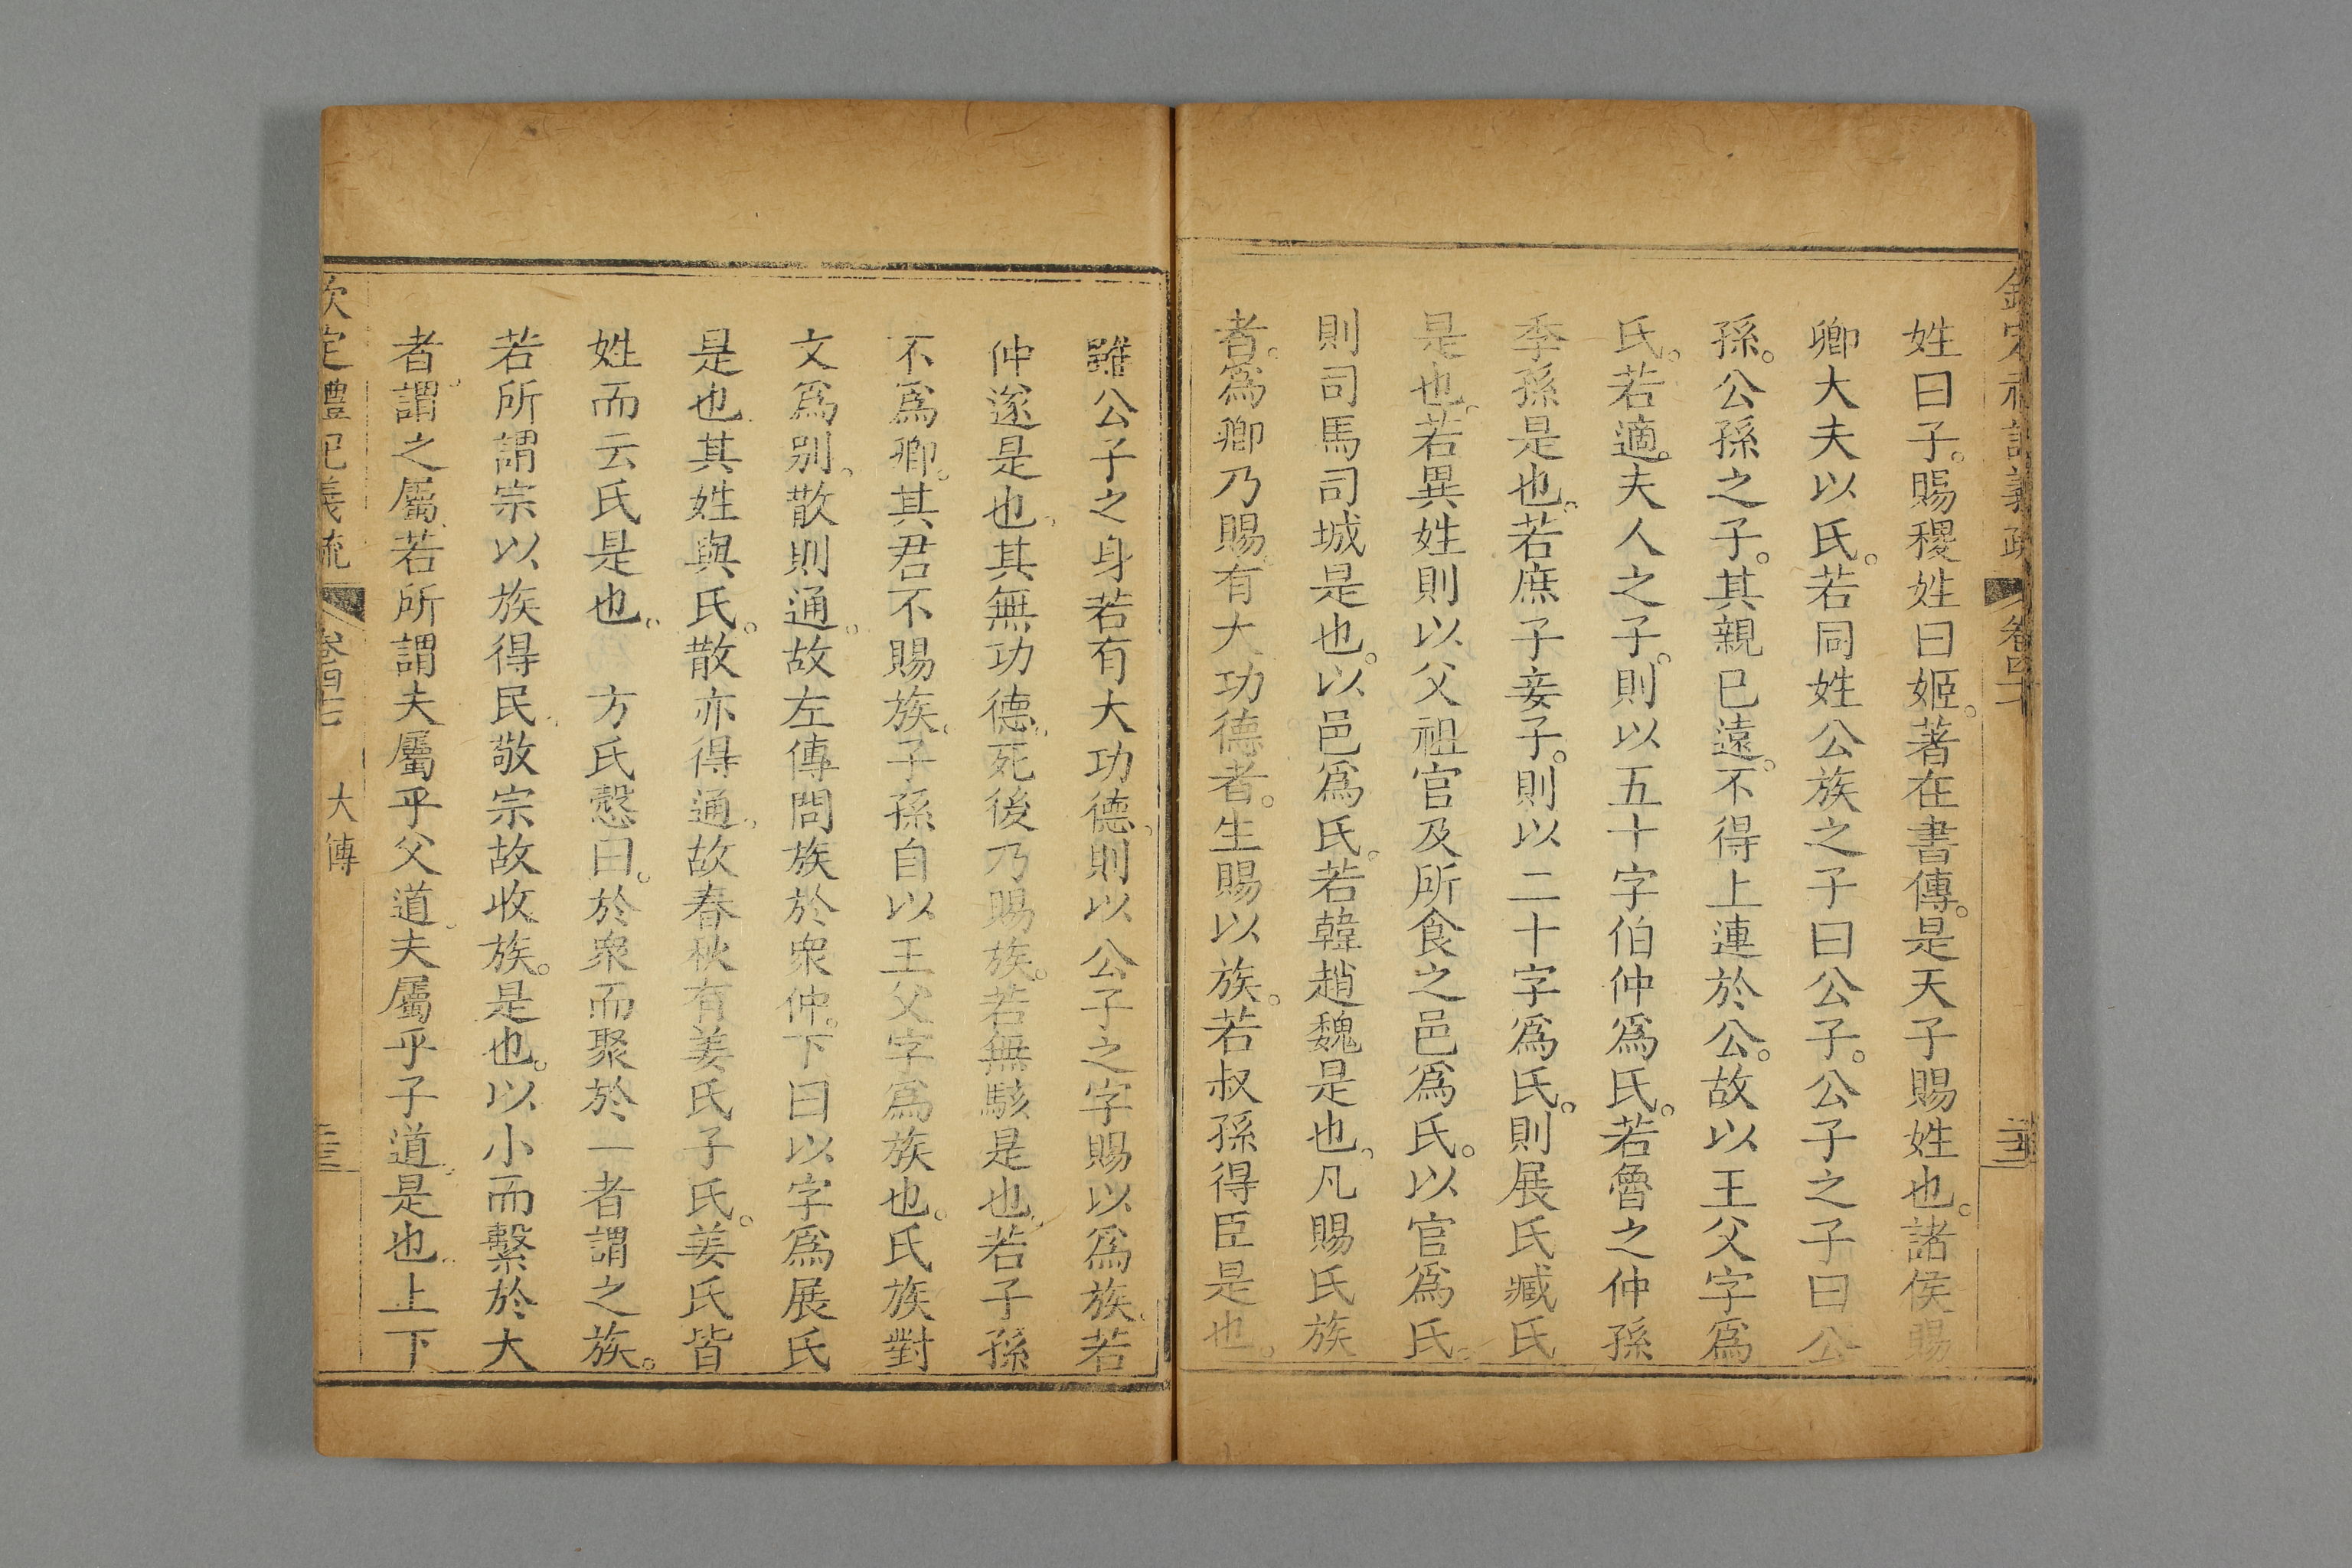 姓曰子。賜稷姓曰姬。著在書傳。是天子賜姓也。諸侯賜
卿大夫以氏。若同姓公族之子曰公子。公子之子曰公
孫。公孫之子。其親已遠。不得上連於公。故以王父字爲
氏。若適。夫人之子。則以五十字伯仲爲氏。若魯之仲孫
季孫是也。若庶子妾子。則以二十字爲氏。則展氏臧氏
是也。若異姓則以父祖官及所食之邑爲氏。以官爲氏。
則司馬司城是也。以邑爲氏。若韓趙魏是也、凡賜氏族
者。爲卿乃賜。有大功德者。生賜以族。若叔孫得臣是也。
雖公子之身若有大功德、則以公子之字賜以爲族、若
仲遂是也、其無功德、死後乃賜族。若無駭是也、若子孫
不爲卿。其君不賜族。子孫自以王父字爲族也。氏族對
文爲别、散則通。故左傳問族於衆仲。下曰以字爲展氏
是也、其姓與氏。散亦得通、故春秋有姜氏子氏。姜氏皆
姓而云氏是也。 方氏慤曰。於衆而聚於一者謂之族。
若所謂宗以族得民、敬宗故收族。是也。以小而繫於大
者、謂之屬、若所謂夫屬乎父道。夫屬乎子道、是也、上下
欽定禮記義疏 卷四十七 大傳